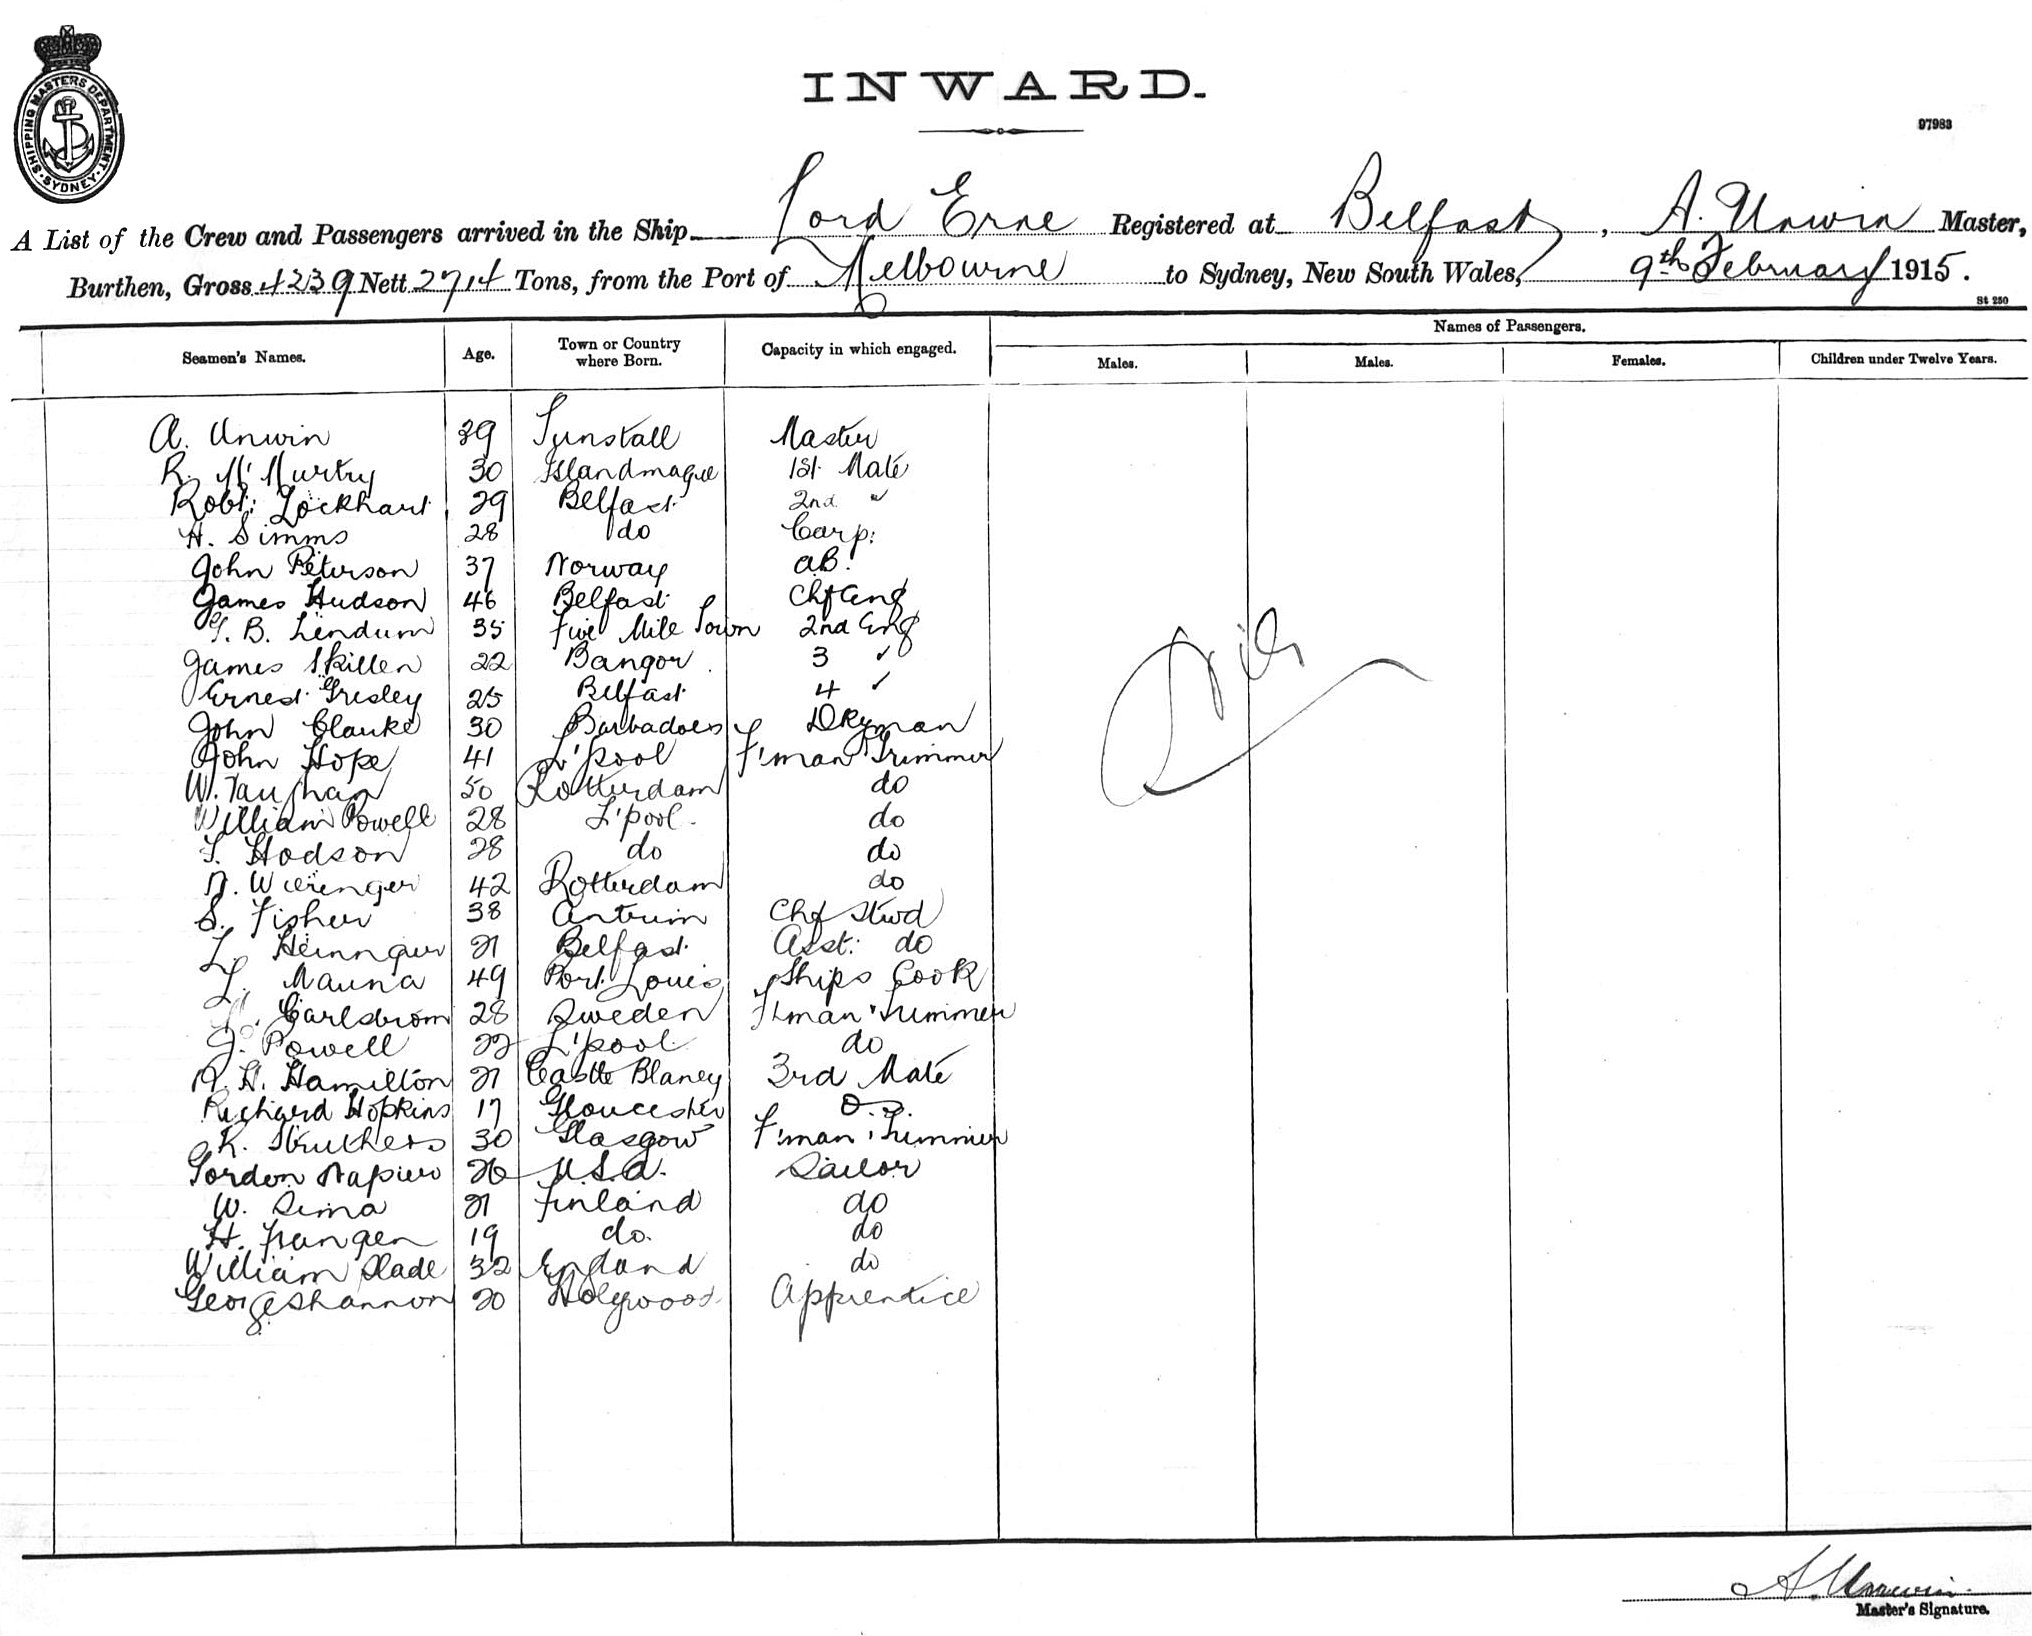 SHIPPING MASTERS DEPARTMENT. SYDNEY.
INWARD.
97983
A List of the Crew and Passengers arrived in the Ship Lord Erne Registered at Belfast, A. Unwin Master,
Burthen, Gross 4239 Nett 2714 Tons, from the Port of Melbourne to Sydney, New South Wales, 9th February 1915.
St 250
Names of Passengers.
Seamen's Names. Age. Town or Country where Born. Capacity in which engaged. Males. Males. Females. Children under Twelve Years.
A. Unwin 39 Tunstall Master
R. McMurtry 30 Islandmagee 1st Mate
Robt: Lockhart 29 Belfast 2nd "
H. Simms 28 do Carp:
John Peterson 37 Norway AB.
James Hudson 46 Belfast Chf Eng
B. Lendum 35 Five Mile Town 2nd Eng
James Skillen 22 Bangor 3 "
Ernest Gresley 25 Belfast 4 "
John Clarke 30 Barbadoes Dkyman
John Hope 41 L'pool F'man Trimmer
W. 50 Rotterdam do
William Powell 28 L'pool. do
T. Hodson 28 do do
Wieringer 42 Rotterdam do
S. Fisher 38 Antrim Chf Stwd
21 Belfast Asst: do
L. Mauna 49 Port Louis Ships Cook
Carlstrom 28 Sweden F'man Trimmer
J. Powell 22 L'pool do
R. H. Hamilton 21 Castle Blaney 3rd Mate
Richard Hopkins 17 Gloucester O.S.
R. Struthers 30 Glasgow F'man Trimmer
Gordon Napier 26 U.S.A. Sailor
W. Sima 21 Finland do
H. 19 do. do
William Slade 32 England do
George Shannon 20 Holywood Apprentice
Nil
A. Unwin
Master's Signature.